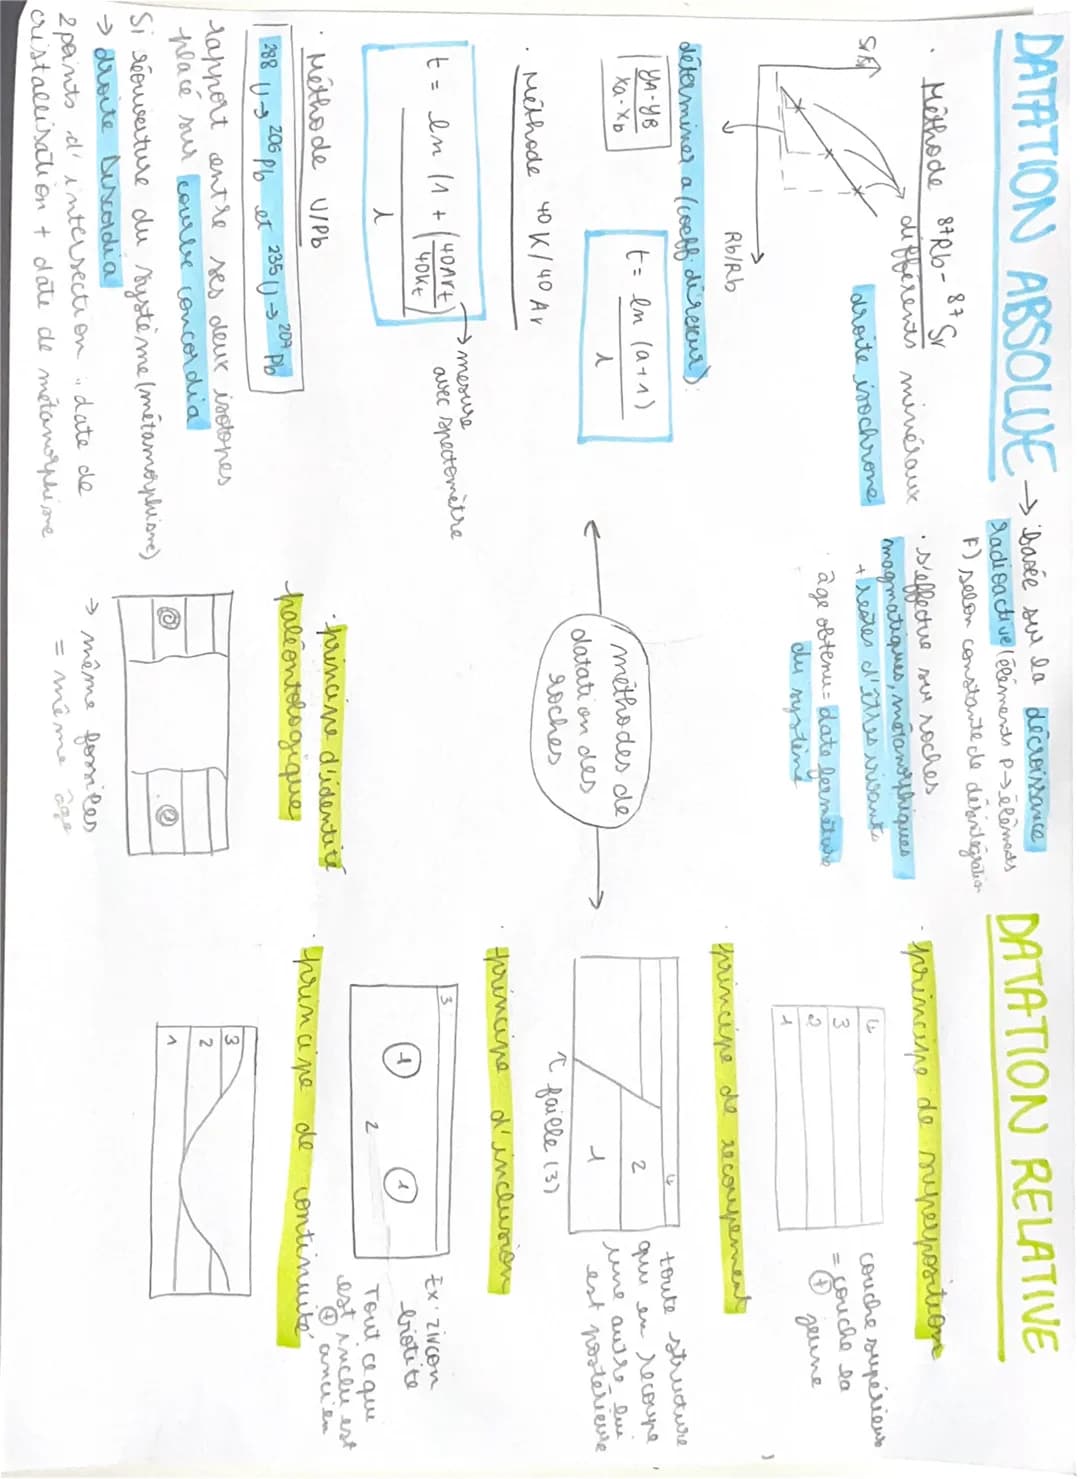 DATATION ABSOLUE → basée sur la décroissance
radioactive (éléments P → éléments
F) selon constante de désintégration
· s'effectue sur roches
magmatiques, métamorphiques
+ restes d'êtres vivants
· âge obtenu = date fermeture
du système
· Méthode 87Rb - 87Sr
différents minéraux
droite isochrone
Sr/Sr
Rb/Rb
déterminer a (coeff. directeur) :
yA - yB
xa - xb
t = ln (a+1)
λ
· Méthode 40K / 40Ar
t = ln (1 + (40Art / 40Kt))
λ
→ mesure
avec spectomètre
· Méthode U/Pb
238 U → 206 Pb et 235 U → 207 Pb
rapport entre ses deux isotopes
placé sur courbe concordia
Si réouverture du système (métamorphisme)
→ droite Discordia
2 points d'intersection : date de
cristallisation + date de métamorphisme
méthodes de
datation des
roches
DATATION RELATIVE
· principe de superposition
4
3
2
1
couche supérieure
= couche la
+ jeune
· principe de recoupement
4
2
1
↑ faille (3)
toute structure
qui en recoupe
une autre lui
est postérieure
· principe d'inclusion
3
1
1
2
Ex : zircon
biotite
Tout ce qui
est inclu est
+ ancien
· principe de continuité
3
2
1
· principe d'identité
paléontologique
→ même fossiles
= même âge